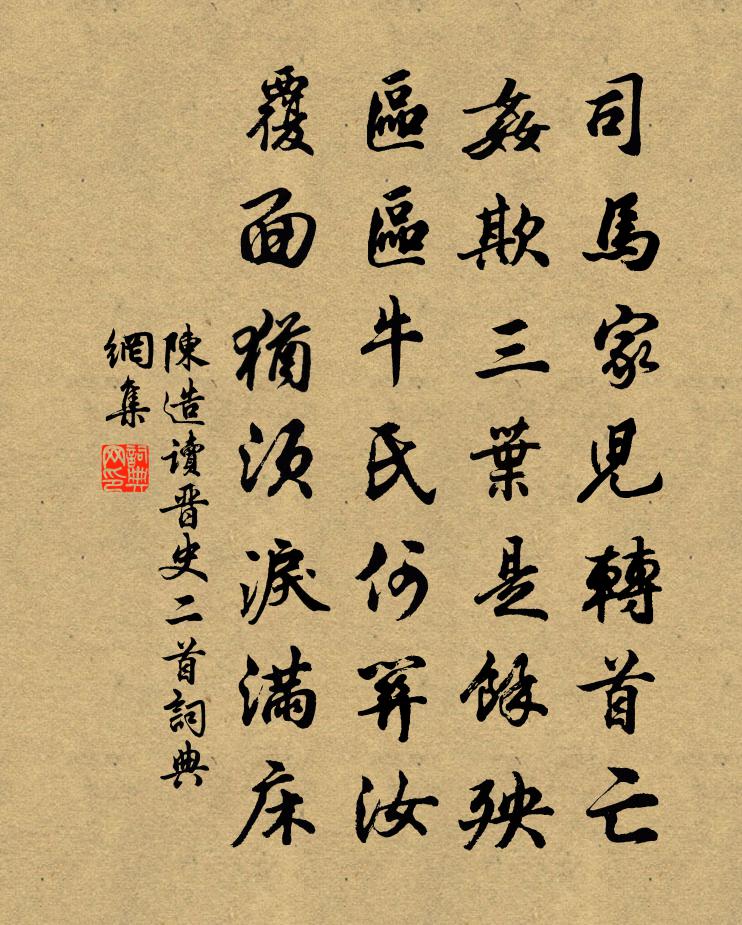 司馬家児轉首亡
姦欺三葉是餘殃
區區牛氏何筭汝
覆面猶須淚滿床
陳造讀晋史二首詞典
網集
詞典
网印